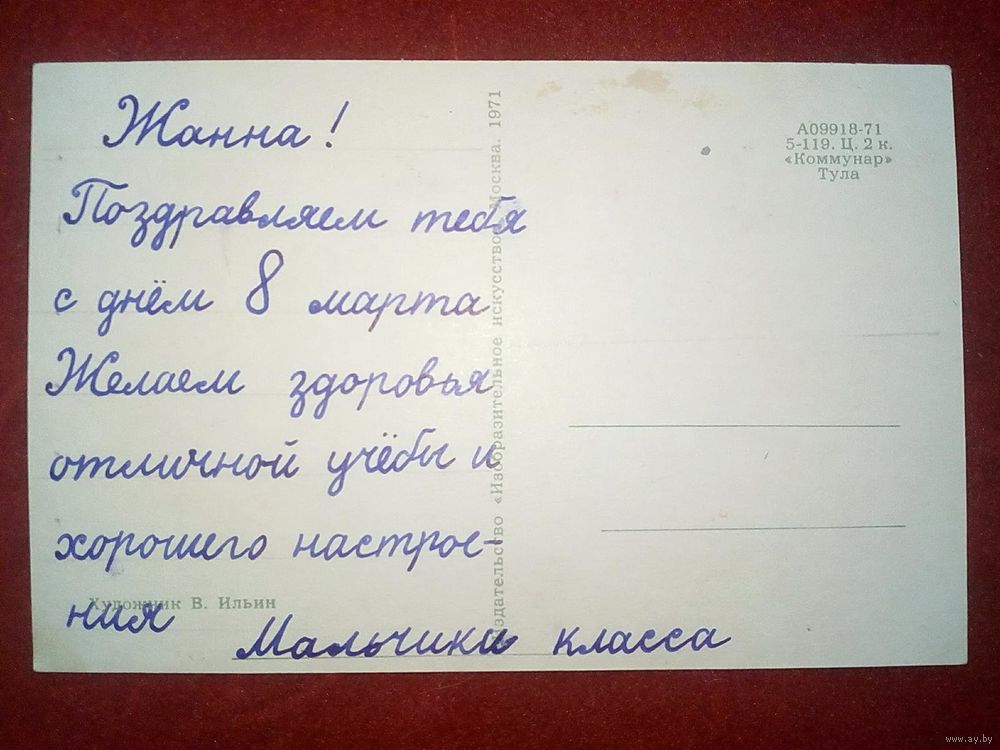 Жанна!
Поздравляем тебя
с днём 8 марта
Желаем здоровья
отличной учёбы и
хорошего настрое-
ния
Мальчики класса
Художник В. Ильин
Издательство «Изобразительное искусство». Москва. 1971
А09918-71
5-119. Ц. 2 к.
«Коммунар»
Тула
www.ay.by